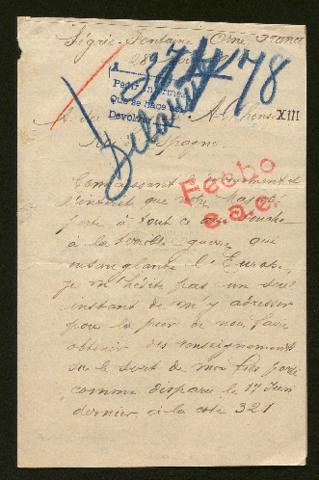 Ségrie-Fontaine Orne France
28
37/1178
Pedir informes
Que se hace
Devolver
Delaunay
A Alphonse XIII
Roi d'Espagne
Fecho
e.a.e.
Connaissant le dévouement et
l'intérêt que votre Majesté
porte à tout ce qui touche
à la terrible guerre qui
ensanglante l'Europe,
je n'hésite pas un seul
instant de m'y adresser
pour la prier de nous faire
obtenir des renseignements
sur le sort de mon fils porté
comme disparu le 17 Juin
dernier à la cote 321